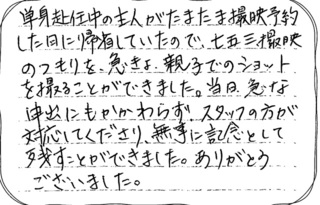 単身赴任中の主人がたまたま撮映予約
した日に帰省していたので、七五三撮映
のつもりを、急きょ、親子でのショット
を撮ることができました。当日、急な
申出にもかかわらず、スタッフの方が
対応してくださり、無事に記念として
残すことができました。ありがとう
ございました。